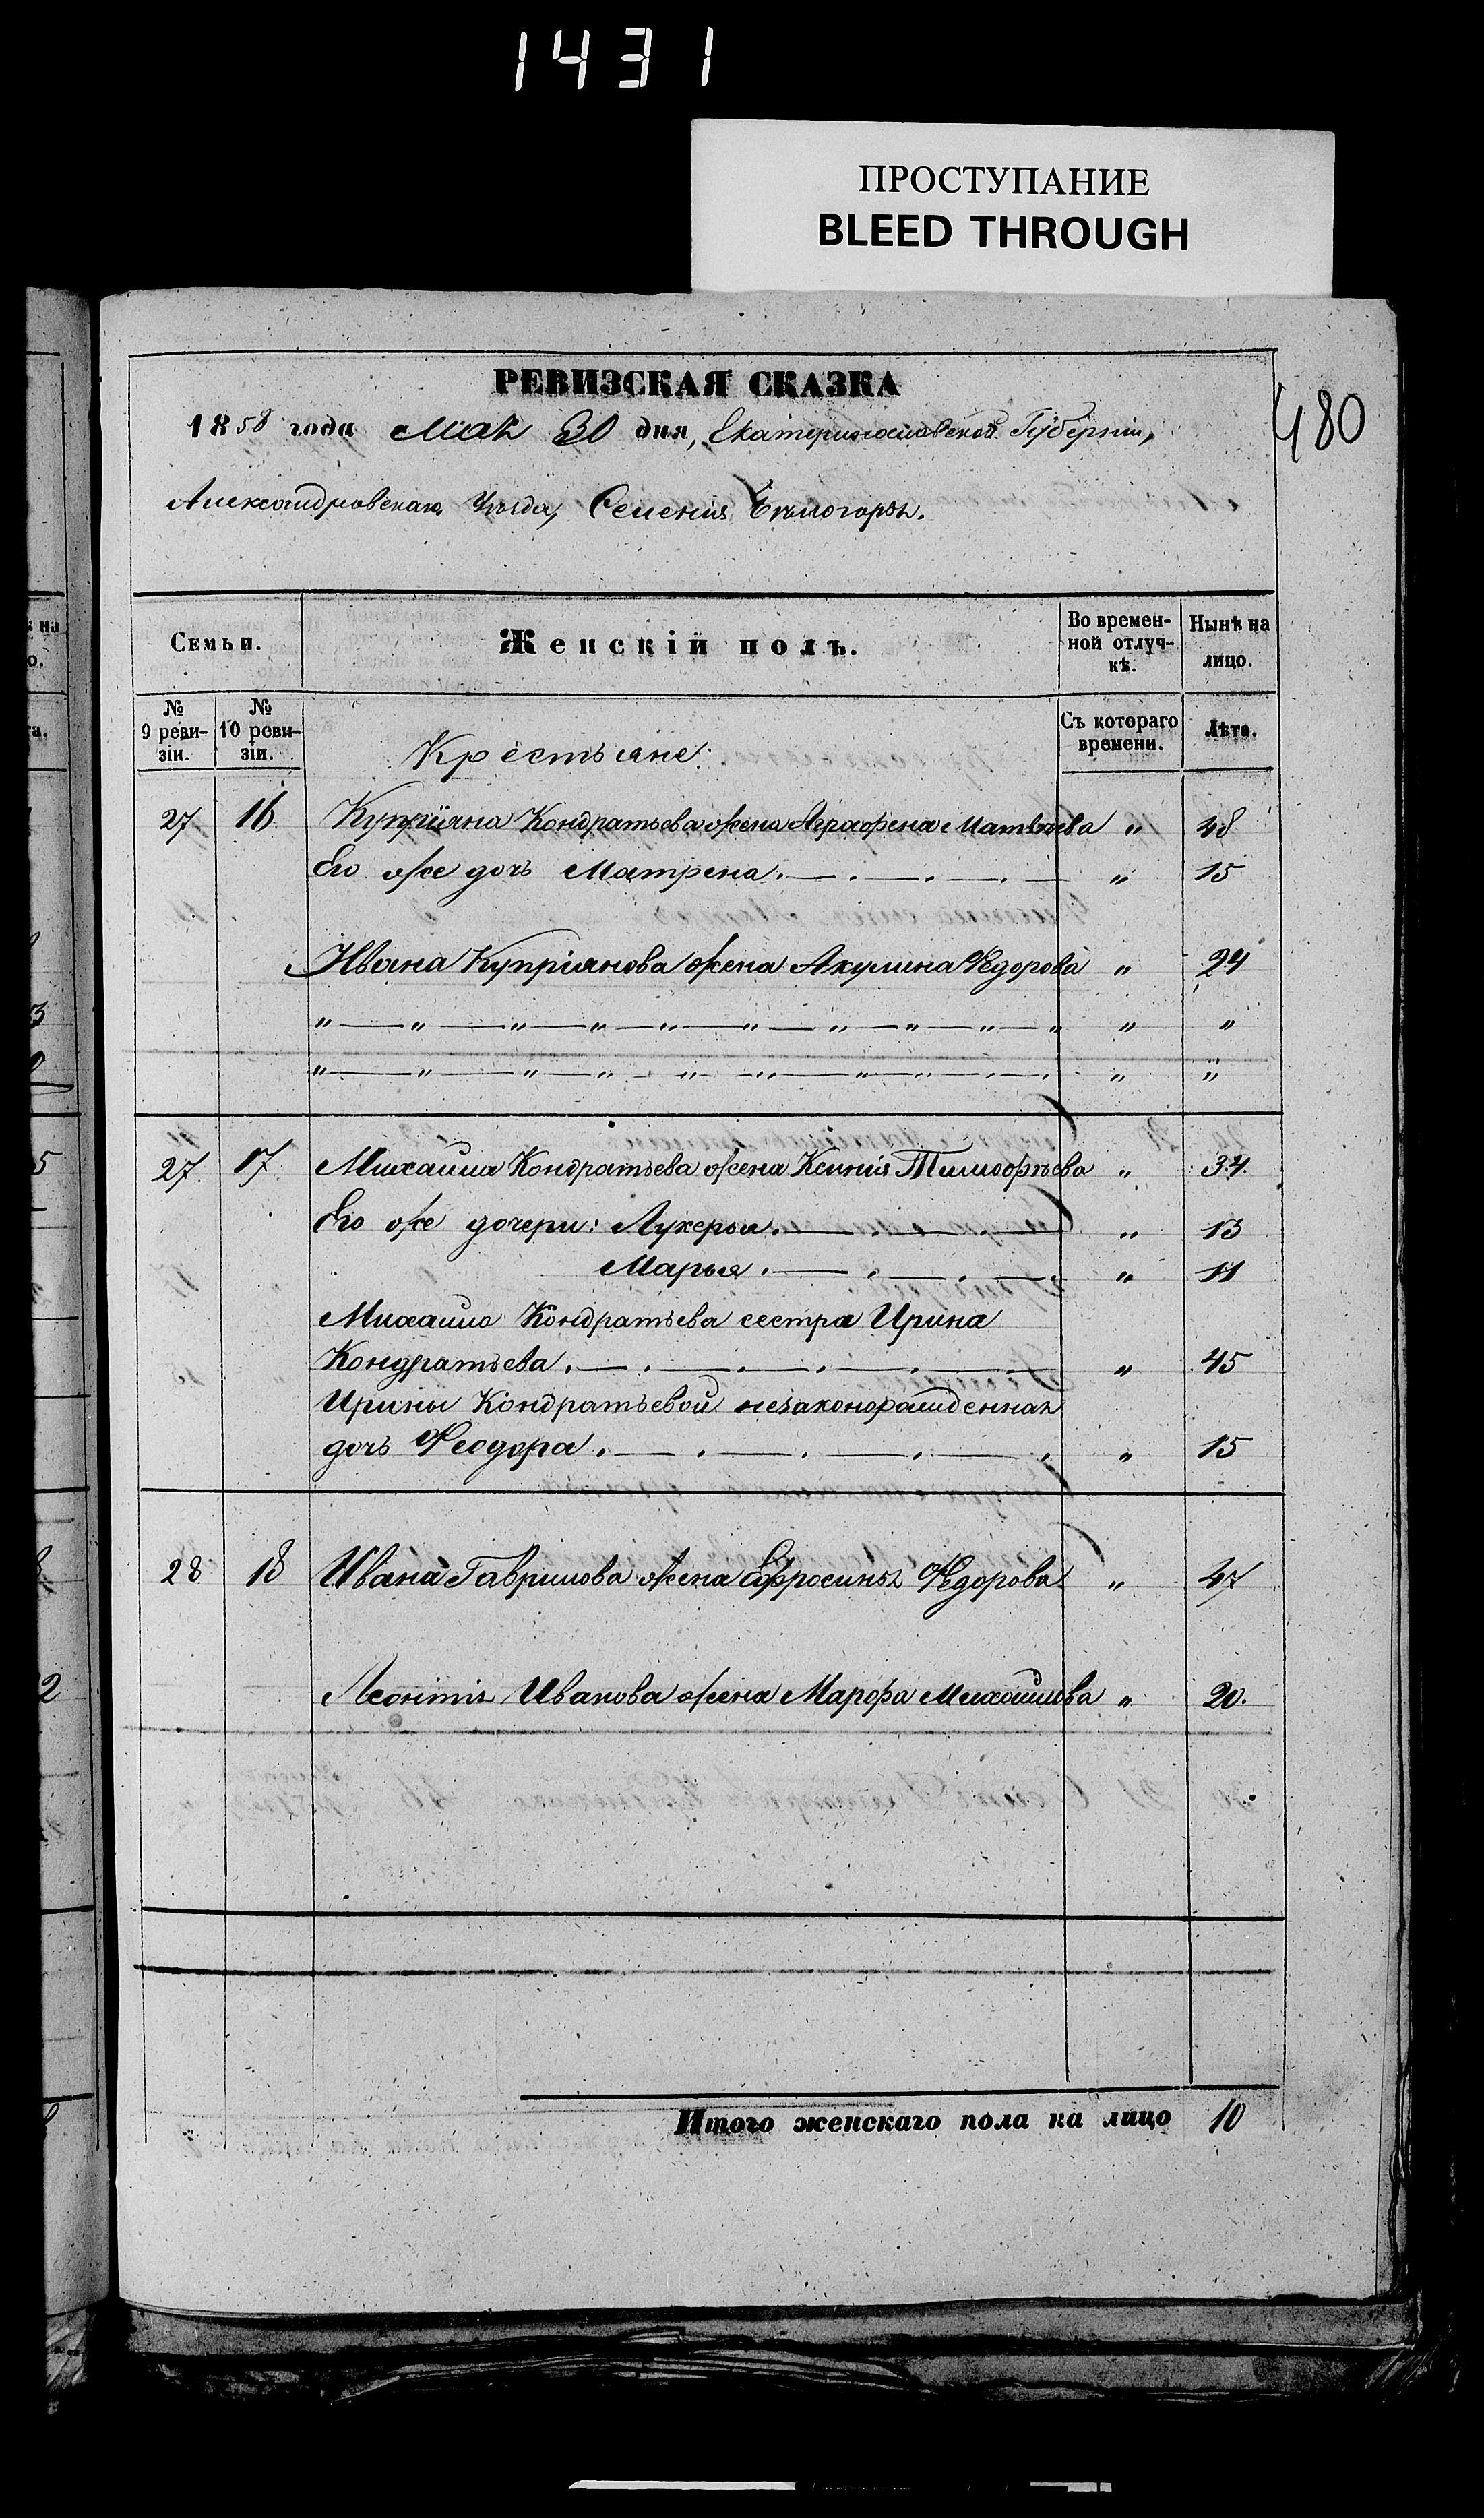 1431
ПРОСТУПАНИЕ
BLEED THROUGH
РЕВИЗСКАЯ СКАЗКА
1858 года Мая 30 дня, Екатеринославской Губерніи,
480
Александровскаго Уѣзда, Селенія Бѣлогорья.
Семьи.
Женскій полъ.
Во времен-
ной отлуч-
кѣ.
Нынѣ на
лицо.
№
9 реви-
зіи.
№
10 реви-
зіи.
Съ котораго
времени.
Лѣта.
Крестьяне:
27 16 Купріяна Кондратьева жена Аграфена Матвѣева „ 48
Его же дочь Матрена. „ 15
Ивана Купріянова жена Акулина Федорова „ 24
„ — „ — „ — „ — „ — „ — „ — „ — „ — „ „ „
„ — „ — „ — „ — „ — „ — „ — „ — . — . „ „
27. 17 Михайла Кондратьева жена Ксенія Тимофѣева „ 34.
Его же дочери: Лукерья. „ 13
Марья. „ 11
Михайло Кондратьева сестра Ирина
Кондратьева. „ 45
Ирины Кондратьевой незаконорожденная
дочь Феодора. „ 15
28 18 Ивана Гаврилова жена Ефросинья Федорова „ 47
Леонтія Иванова жена Марфа Михайлова „ 20.
Итого женскаго пола на лицо 10